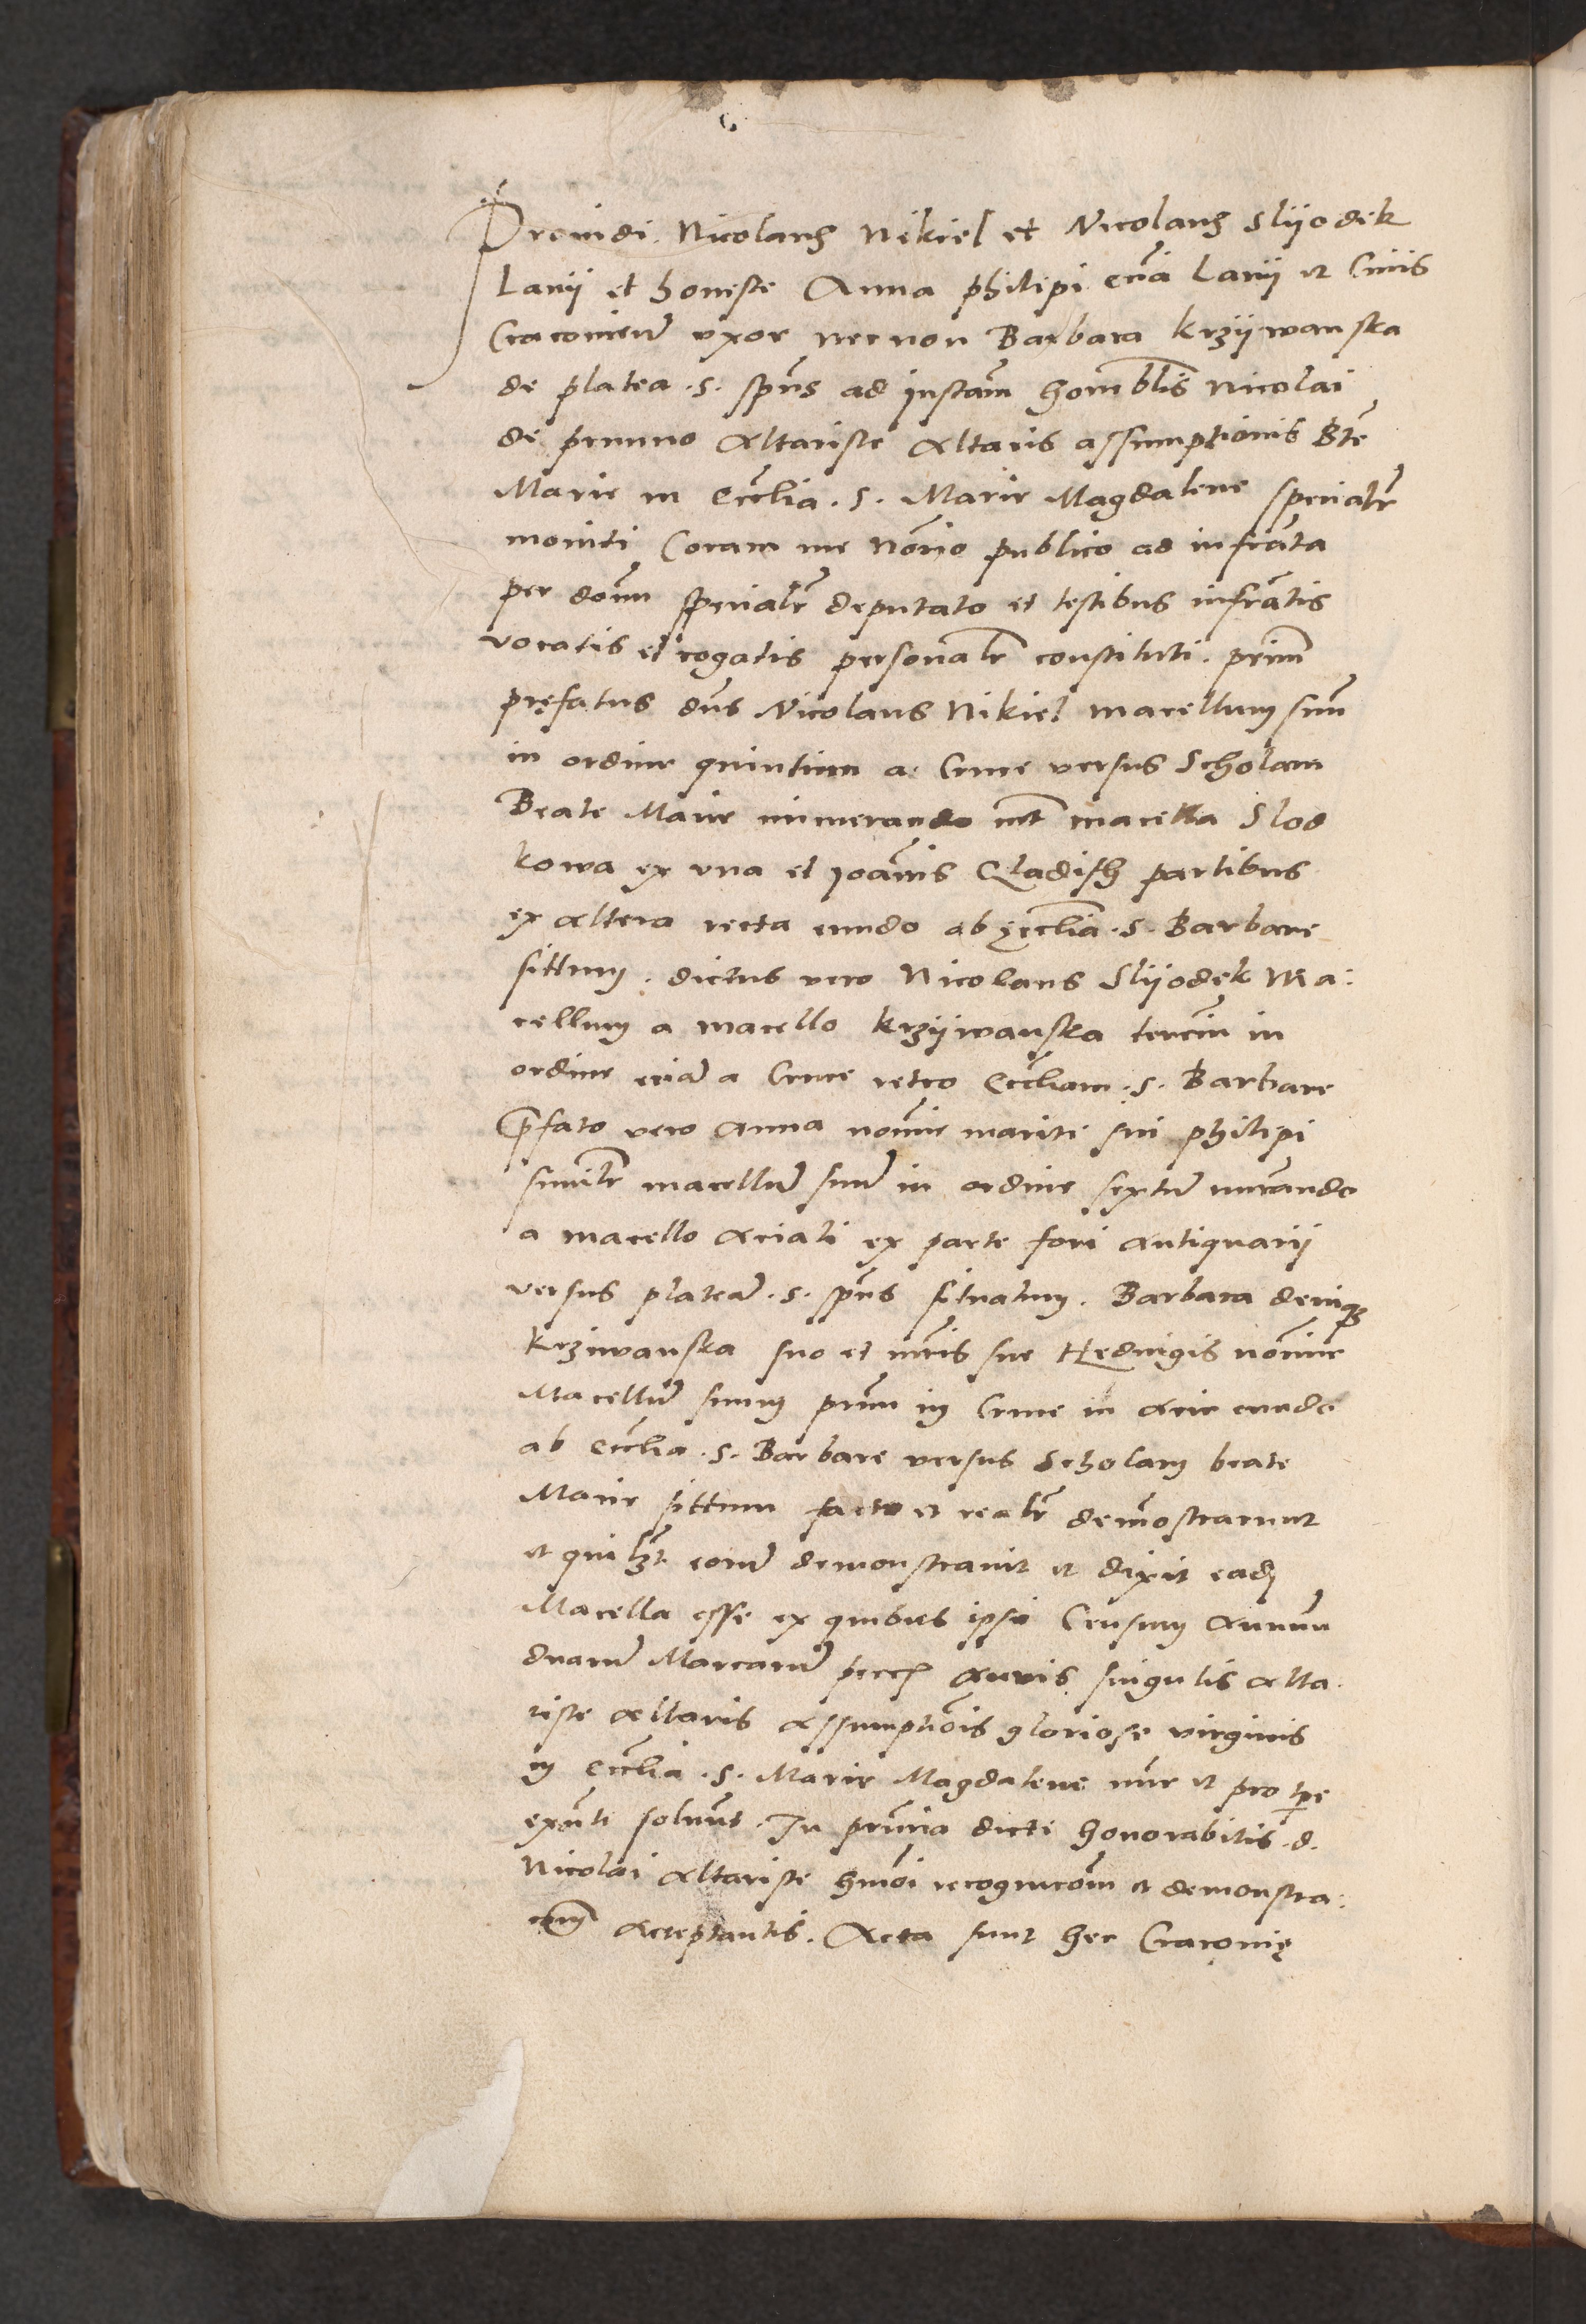 Prouidi Nicolaus Nikiel et Nicolaus Slyodek
Lanij et honeste Anna philipi etiã Lanij et Ciuis
Cracouieñ vxor necnon Barbara krzijwanska
de platea . s . spũs ad instañ honorablis Nicolai
de pruuno Altariste Altaris assumptionis Bte
Marie in Eccłia . s . Marie Magdalene specialr
moniti Coram me Notrio publico ad infrãta
per dõum specialr deputato et testibus infrãtis
vocatis et rogatis personalr constituti . primũ
pręfatus dñs Nicolaus Nikiel macellum suũ
in ordine quintum a Cruce versus Scholam
Beate Marie numerando int macella Slod
kowa ex vna et Joañis Gładish partibus
ex altera recta eundo ab ęcclia . s . Barbare
sittum . dictus vero Nicolaus Slijodek Ma:
cellum a macello krzijwanska terciũ in
ordine eciã a Cruce retro Eccliam . s . Barbare
p̃fato vero Anna noĩe mariti sui philipi
similr macellũ suũ in ordine sextũ nũrando
a macello Aciali ex parte fori antiquarij
versus plateã . s . spũs situatum . Barbara deniqz
krziwanska suo et mr̃is sue Hedwigis noĩe
Macellũ suum primũ in Cruce in acie eundo
ab Ecclia . s . Barbare versus Scholam beate
Marie sittum facto et realr demõstrarunt
et quilzt eorũ demonstrauit et dixit eadẽ
Macella esse ex quibus ipsi Censum Annuũ
duarũ Marcarũ pecc̃ Annis singulis alta:
riste altaris Assumptiõis gloriose virginis
in Ecclia . s . Marie Magdalene nũc et pro tpe
exñti soluũt . In pñtia dicti honorabilis . d .
Nicolai Altariste hmõi recognicõm et demonstra:
cõm acceptantis . Acta sunt hec Cracouię